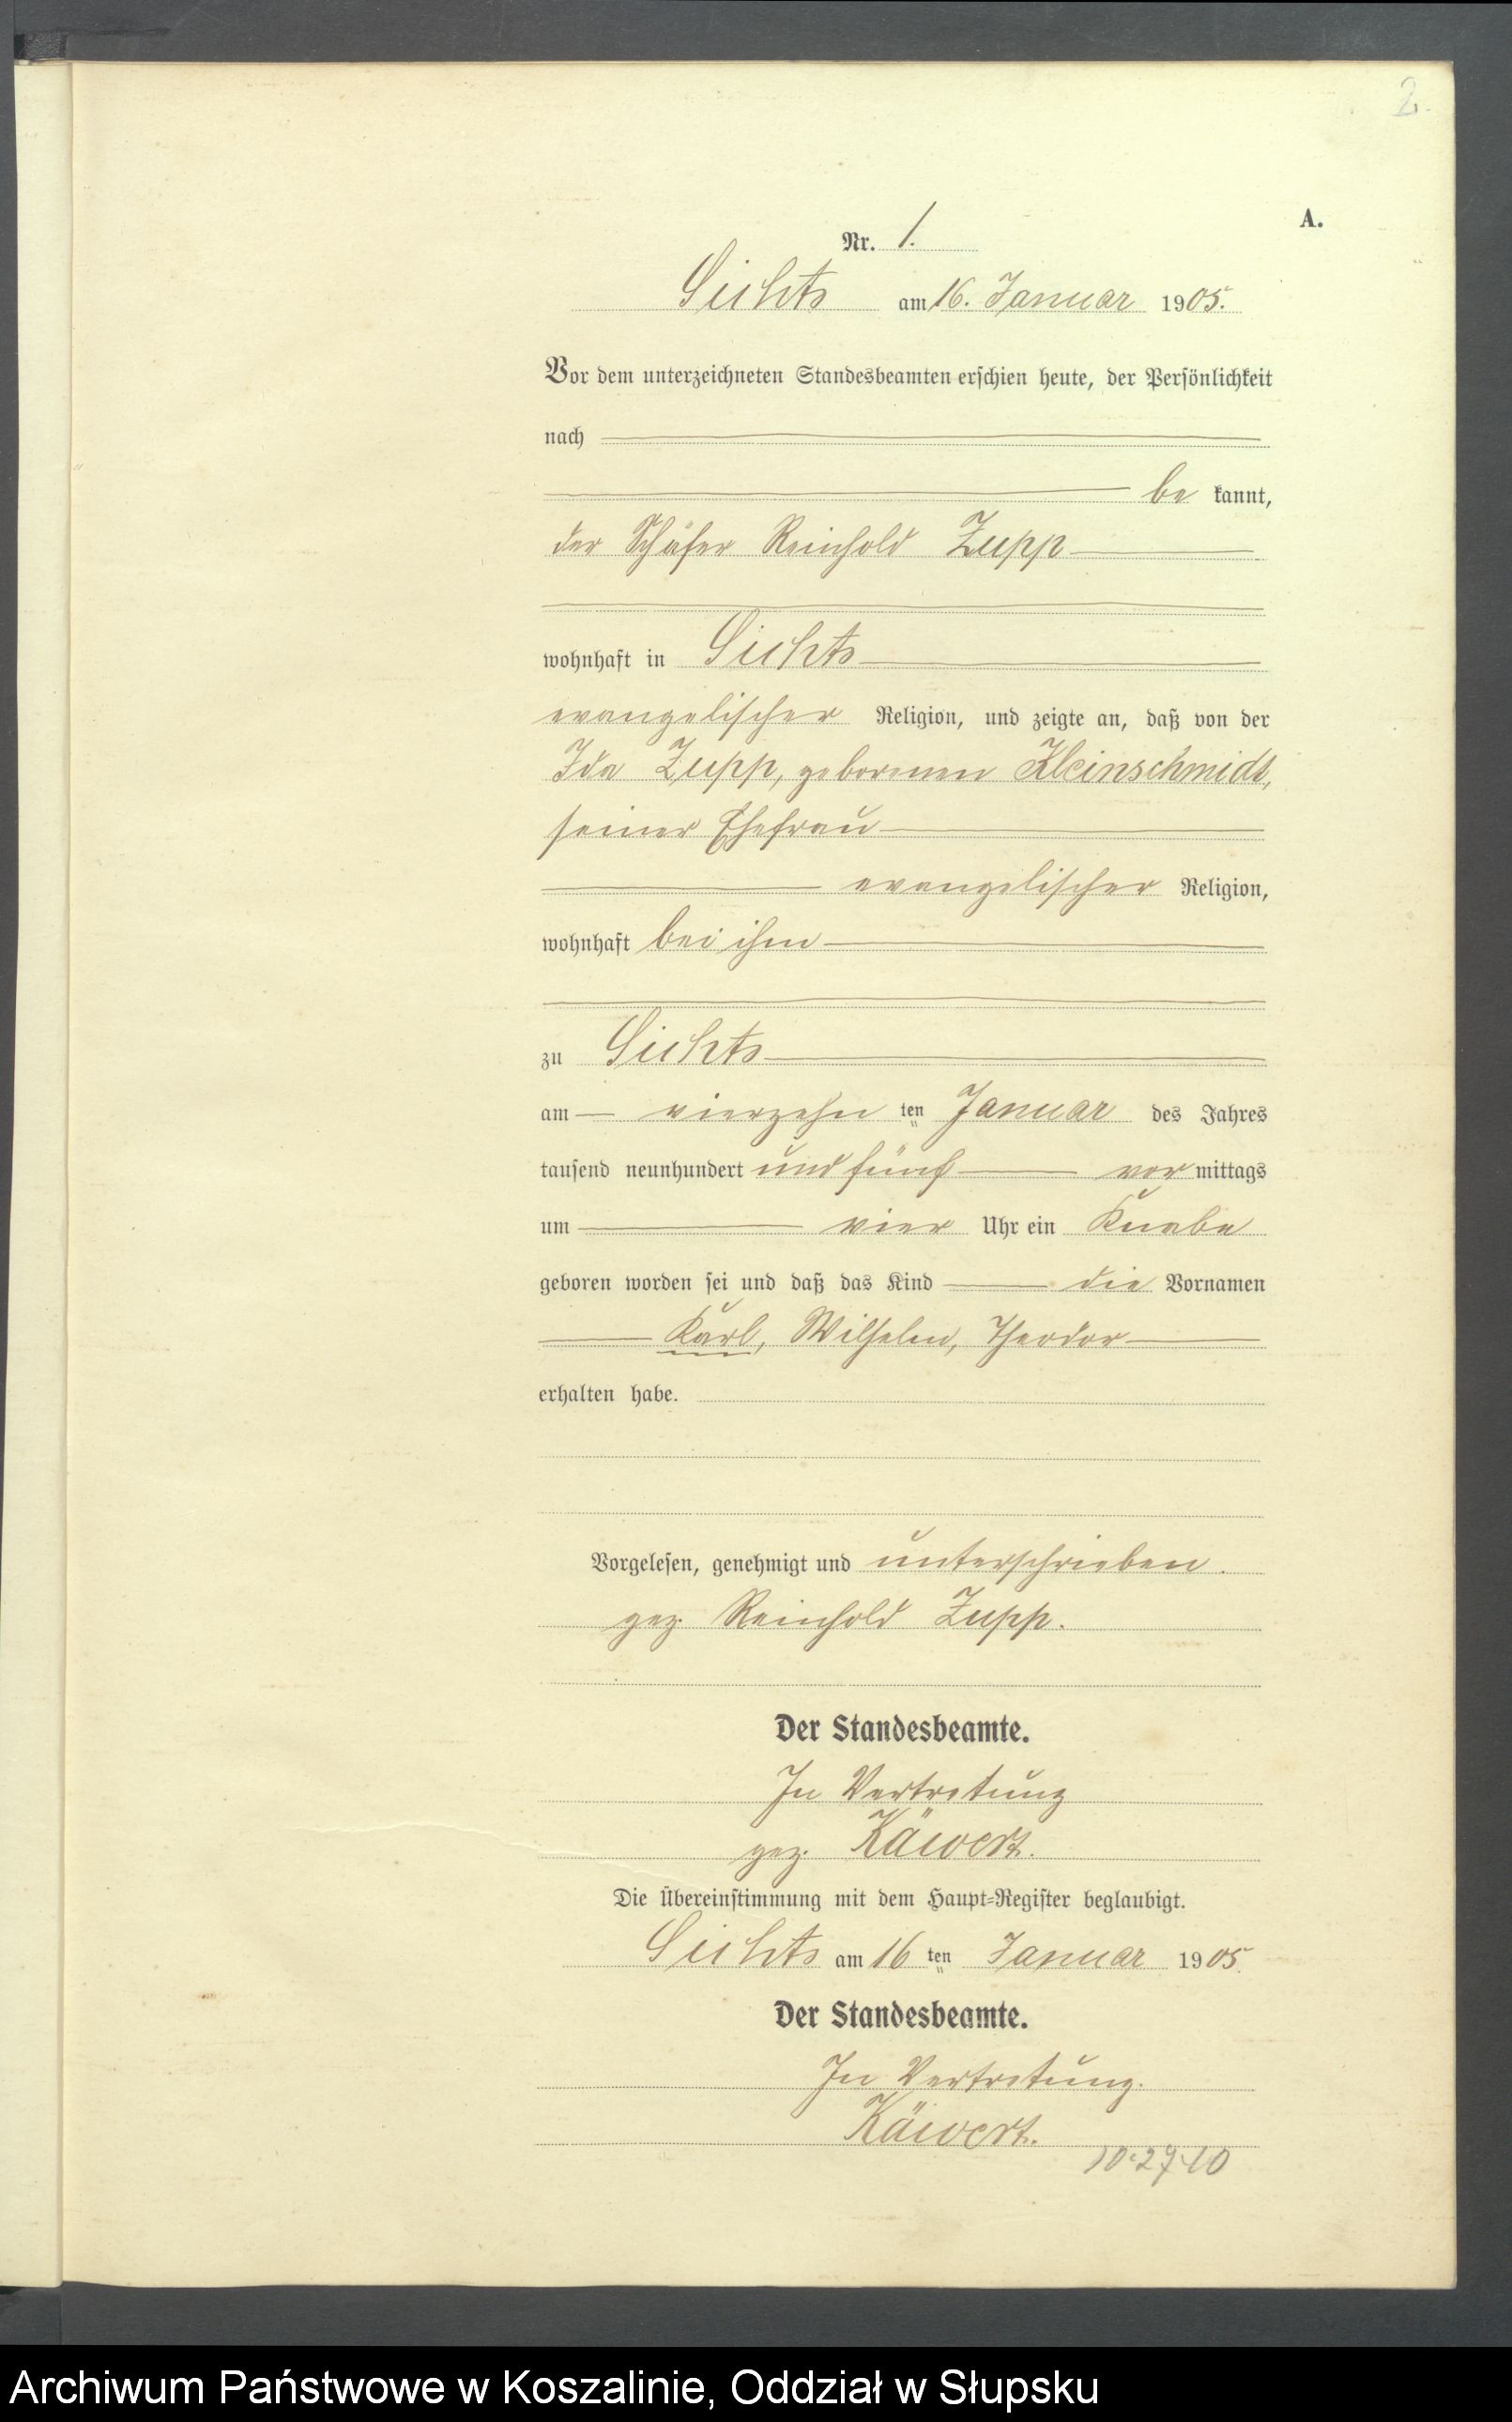 2.
A.
Nr. 1.
Sichts am 16. Januar 1905.
Vor dem unterzeichneten Standesbeamten erschien heute, der Persönlichkeit
nach
be kannt,
der Schäfer Reinhold Zupp
wohnhaft in Sichts
evangelischer Religion, und zeigte an, daß von der
Ida Zupp, geborenen Kleinschmidt,
seiner Ehefrau
evangelischer Religion,
wohnhaft bei ihm
zu Sichts
am vierzehn ten Januar des Jahres
tausend neunhundert und fünf vor mittags
um vier Uhr ein Knabe
geboren worden sei und daß das Kind die Vornamen
Karl, Wilhelm, Theodor
erhalten habe.
Vorgelesen, genehmigt und unterschrieben.
gez. Reinhold Zupp.
Der Standesbeamte.
In Vertretung
gez. Käwert.
Die Übereinstimmung mit dem Haupt-Register beglaubigt.
Sichts am 16 ten Januar 1905.
Der Standesbeamte.
In Vertretung.
Käwert.
Archiwum Państwowe w Koszalinie, Oddział w Słupsku